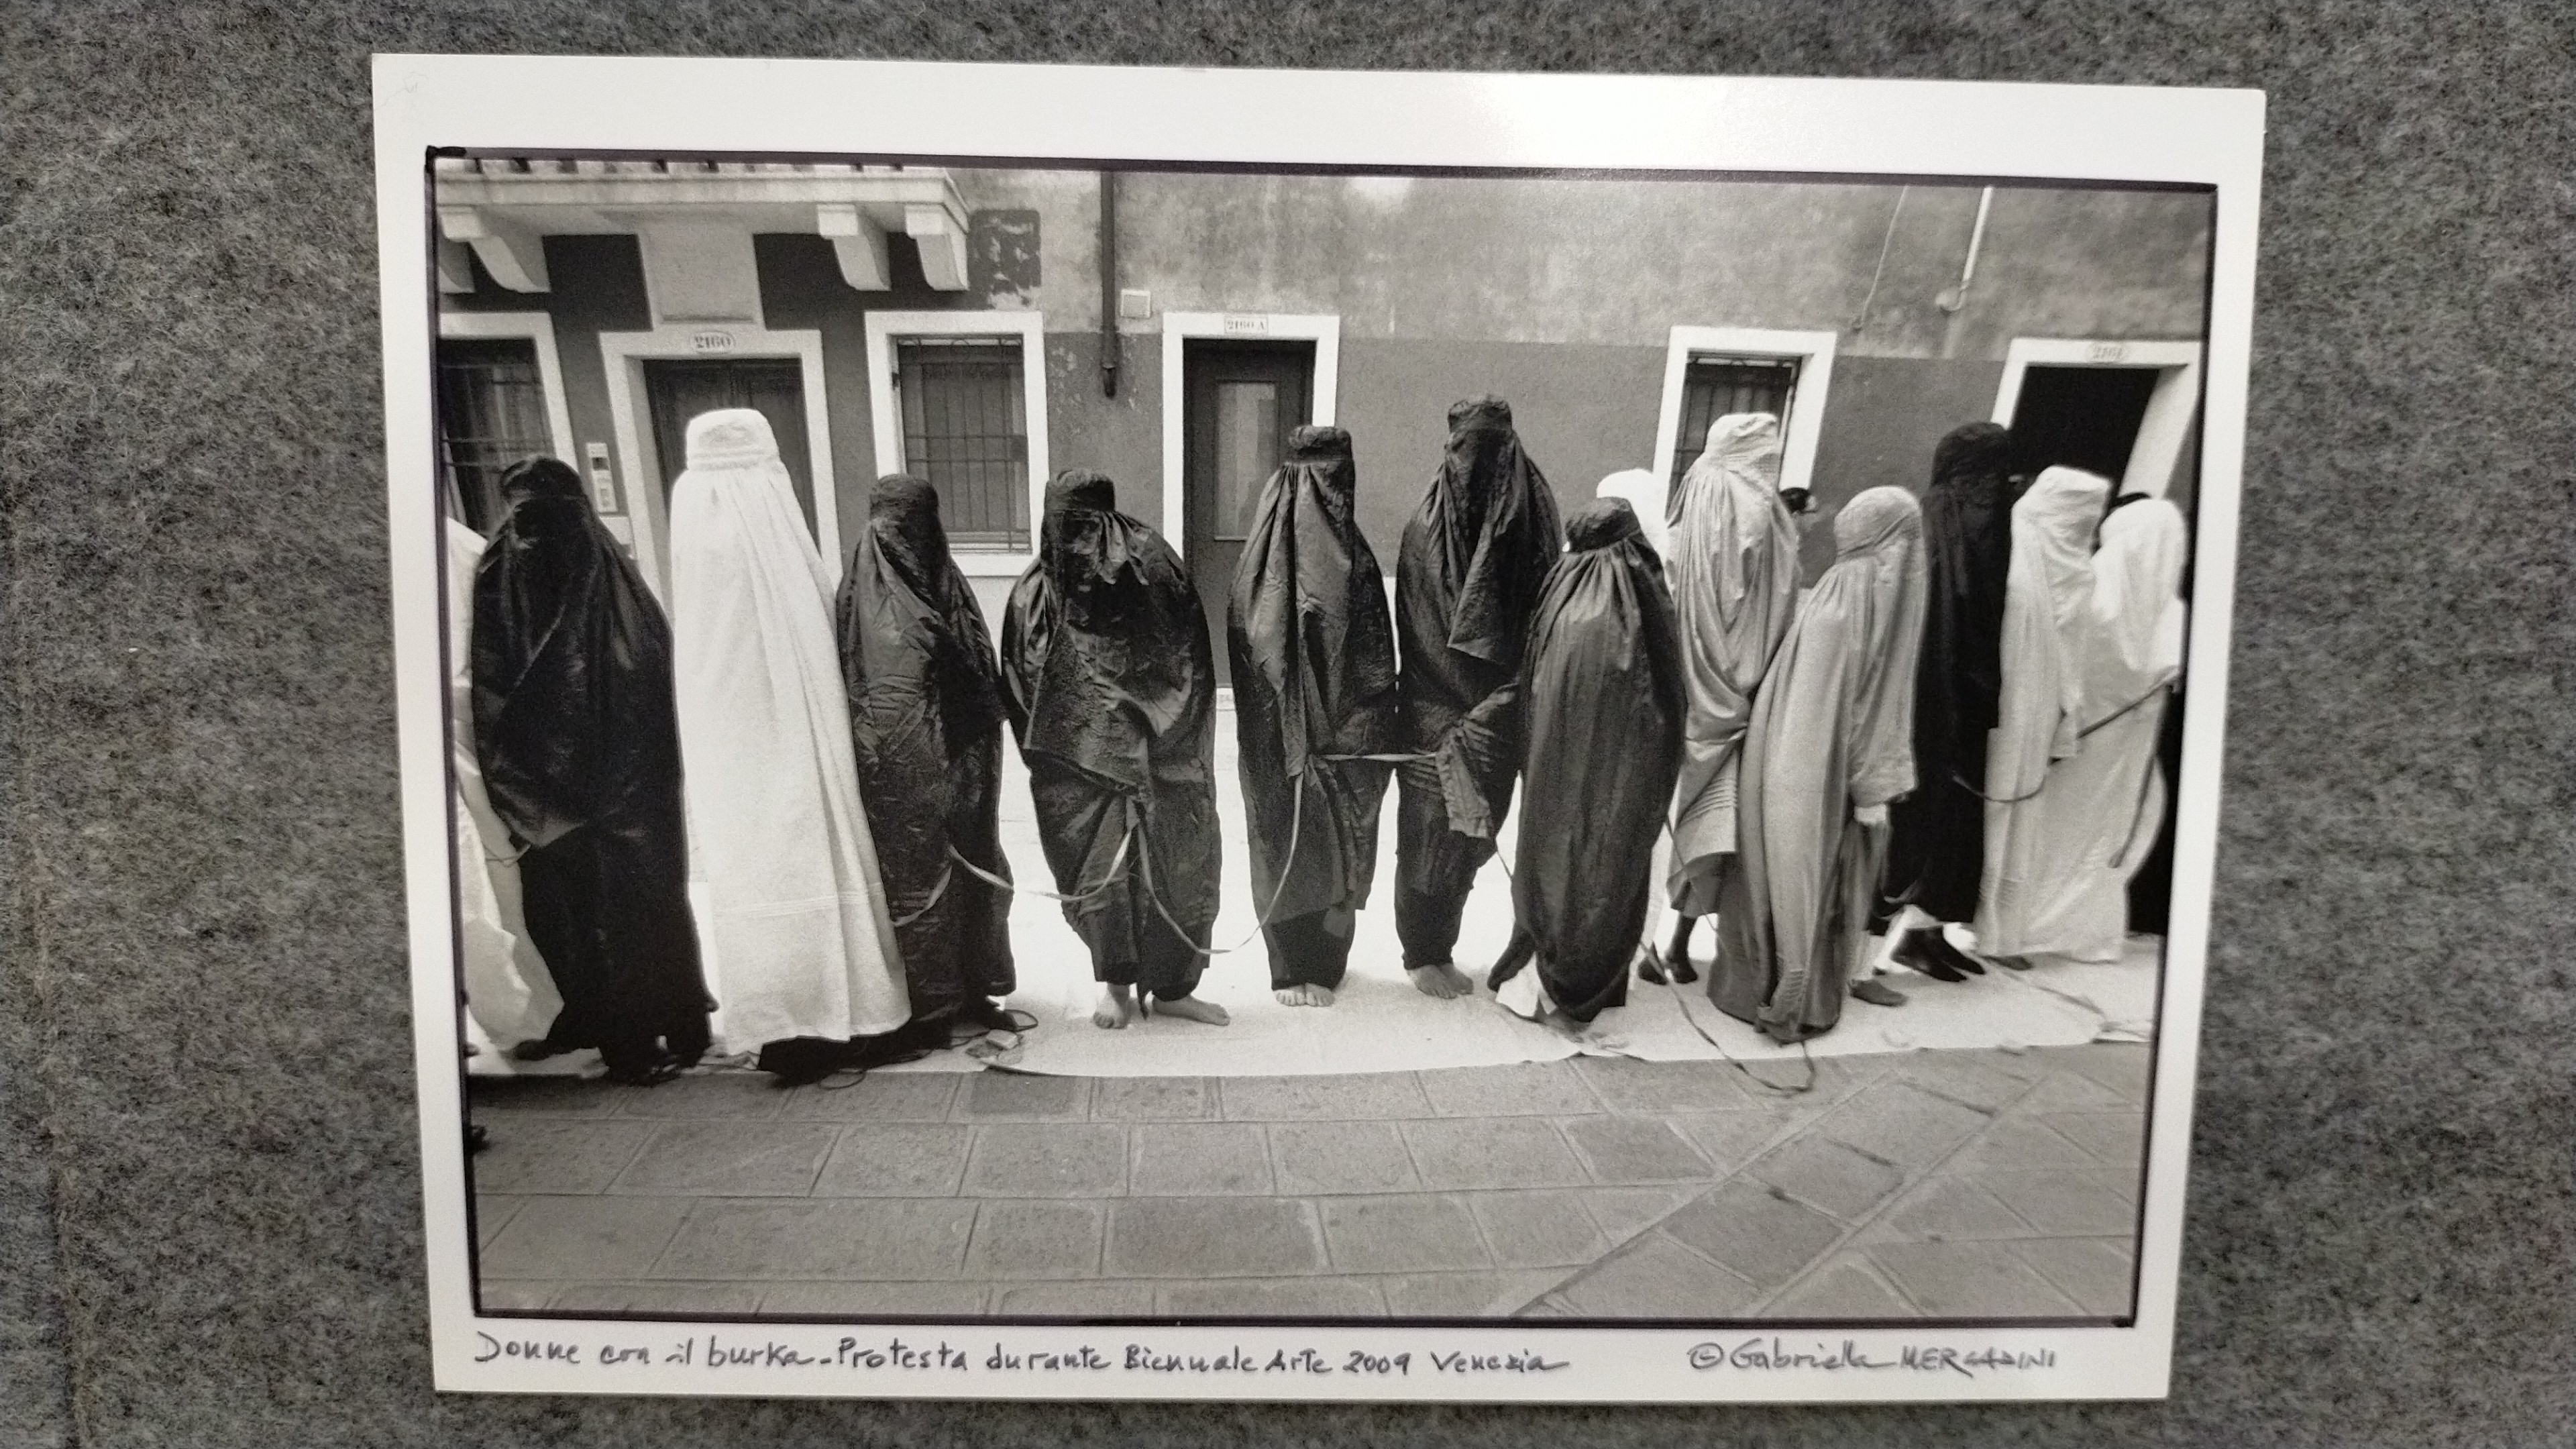 2160
2160 A
Donne con il burka - Protesta durante Biennale Arte 2009 Venezia
© Gabriella MERCADINI